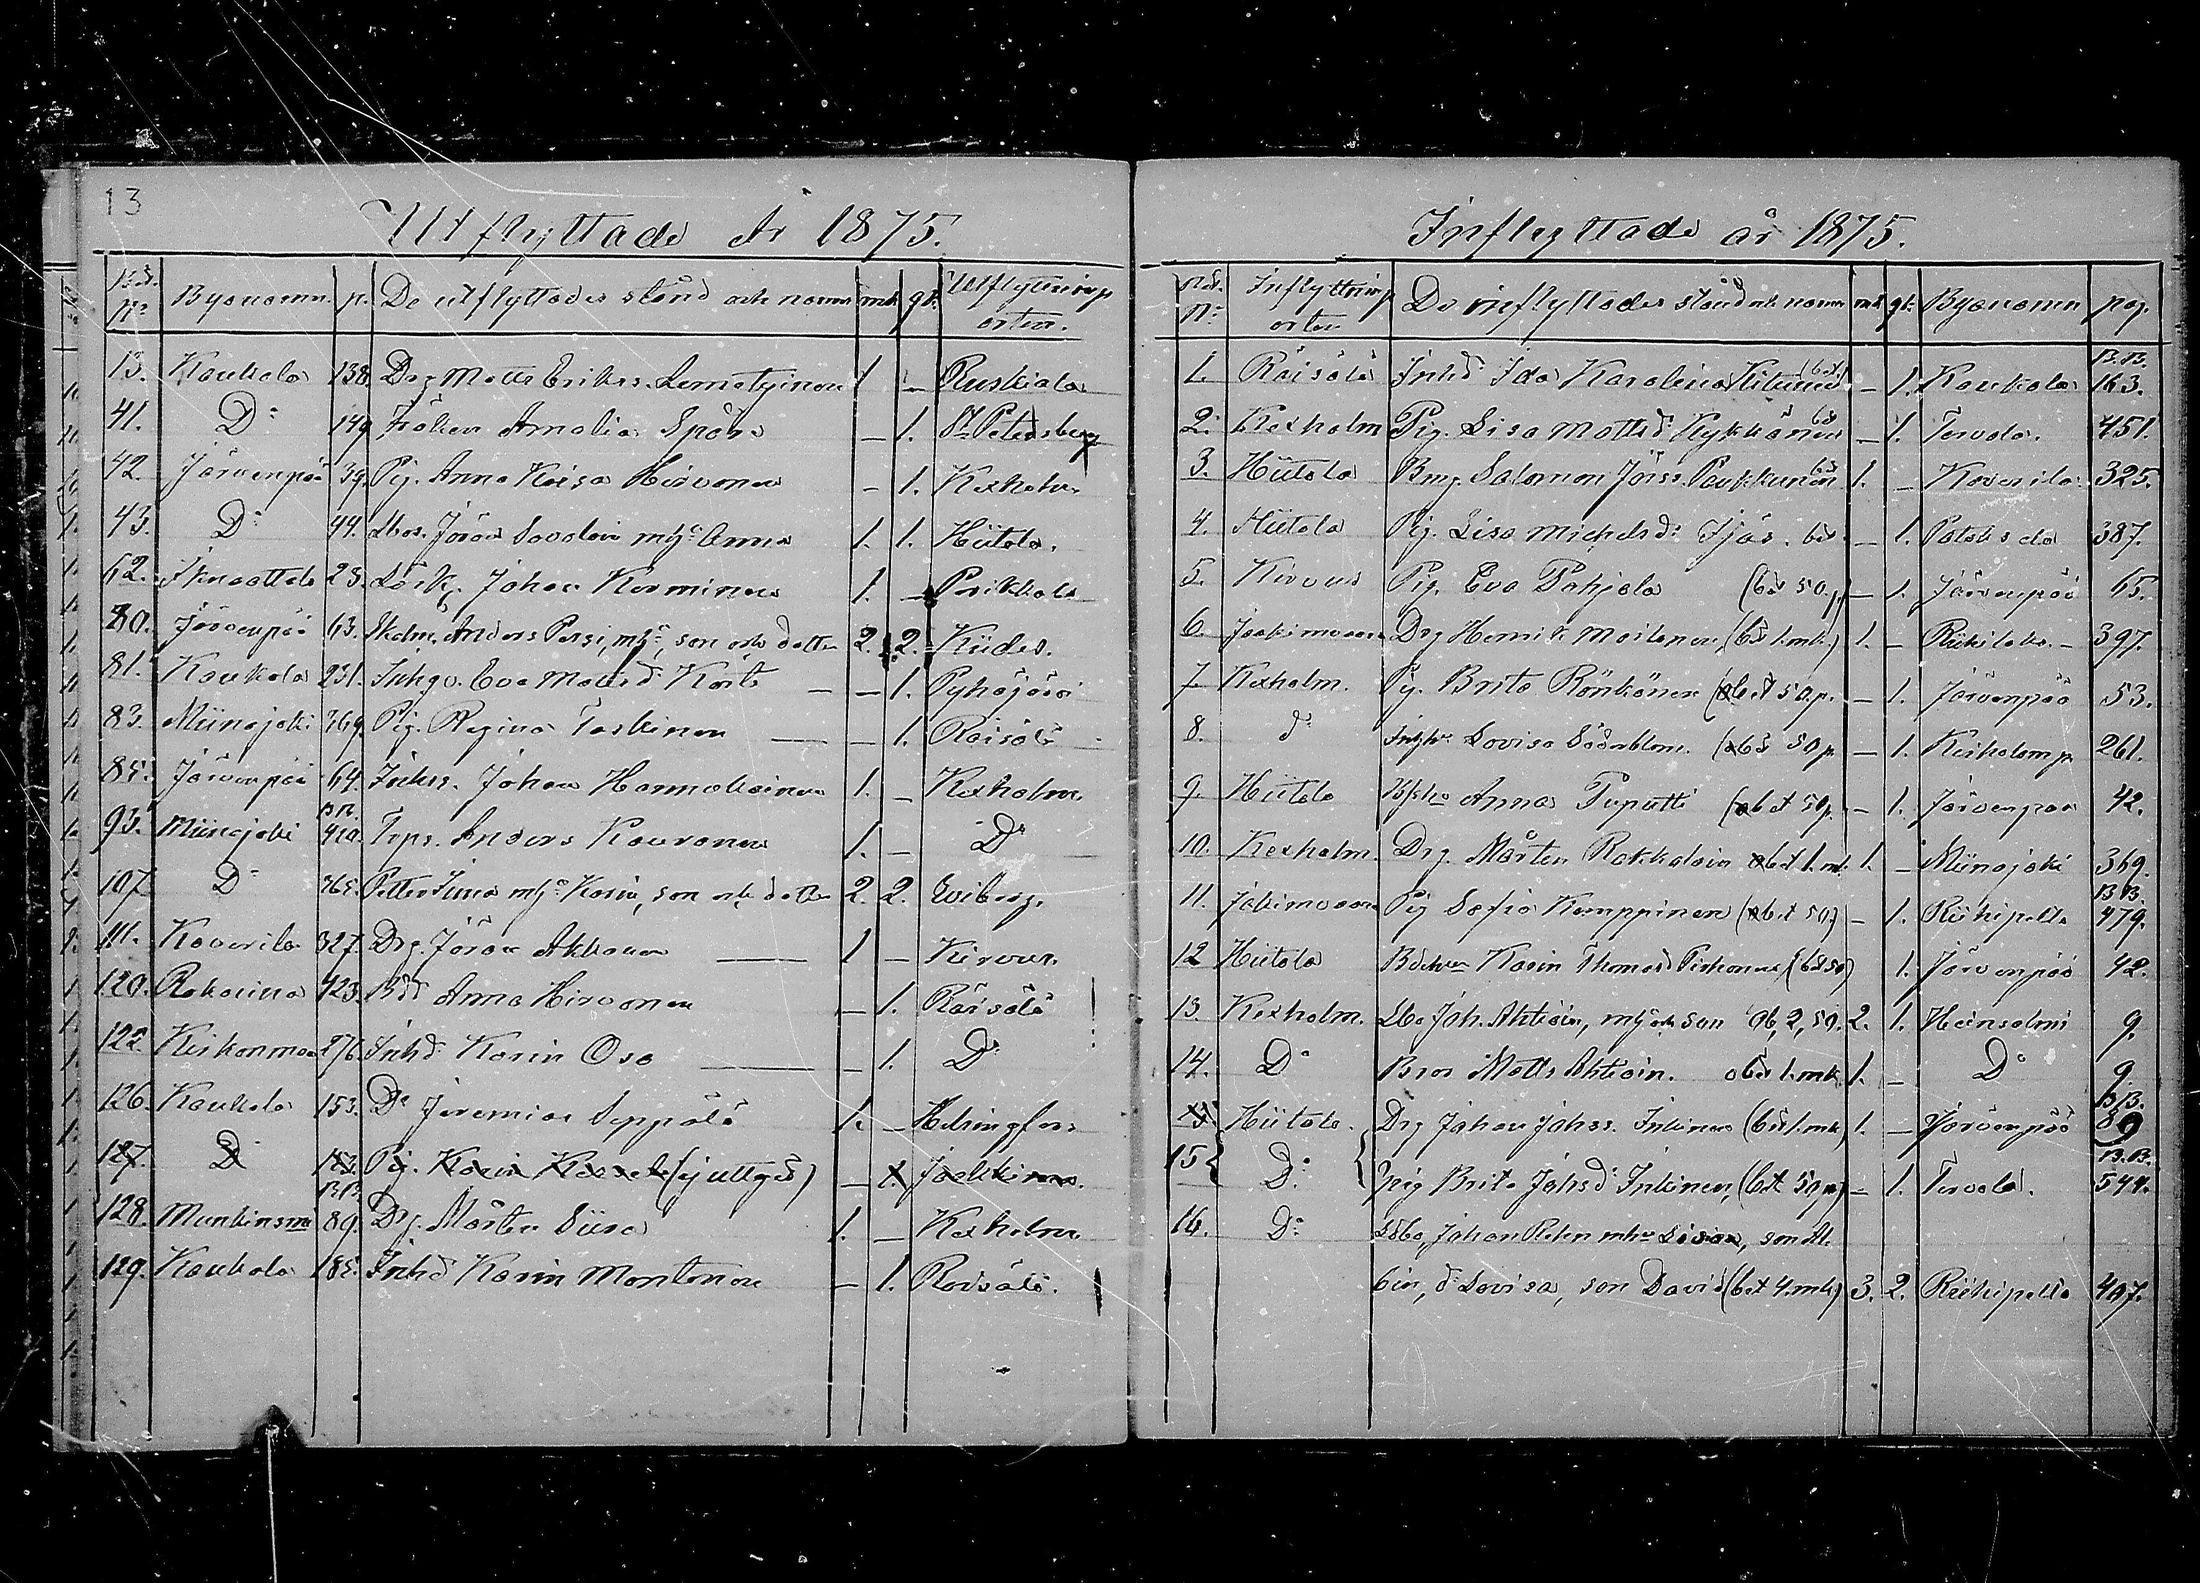 13
Utflyttade År 1875.
Bet. No Byanamn. p. De utflyttades stånd och namn mk. qk. Utflyttnings orten.
13. Kaukola 138. Drg Matts Eriks. Lemetyinen 1 — Ruskiala
41. Do 149 Fröken Amalia Spåre — 1. St Petersberg
42. Järvenpää 39. Pig. Anna Kaisa Hirvonen — 1. Kexholm.
43. Do 44. Lbos. Jöran Savolain mh. Anna 1. 1. Hiitola.
62. 23. Johan Korminen 1. — Parikkala
80. Järvenpää 63. Anders Parsi, mh, son och dotter 2. 2. Kides.
81. Kaukola 231. Eva Mattsd. — — 1. Pyhäjärvi
83. Miinajoki 369. Pig. Regina Taskinen — — 1. Räisälä
85. Järvenpää 64. Inhs. Johan Hannukainen 1. — Kexholm.
93. Miinajoki 410. Anders Kauronen 1. — Do
107 Do 365. Petter mh. Karin, son och dotter 2. 2. Wiborg.
111. Kaverila 327. Drg. Jöran Akkanen — 1 — Kirvus.
120. Rokosina 423. Anna Hirvonen — 1. Räisälä
122. 276. Inhd. Karin Osa — — 1. Do
126. Kaukola 153. Do Jeremias Seppälä 1. — Helsingfors
127. Do 153. Pig. Karin (ej uttaged) — 1. Jaakkima.
B.B.
128. 89. Drg. Mårten Siira 1. — Kexholm
129. Kaukola 185. Inhd Karin Montonen — 1. Räisälä.
Inflyttade år 1875.
Bet. No. Inflyttnings orten De inflyttades stånd och namn mk qk. Byanamn pag.
B.B.
1. Räisälä Inhd. Ida Karolina Hitunen bet — 1. Kaukola 163.
2. Kexholm Pig. Lisa Mattsd. Kykkänen bet — 1. Tervola. 451.
3. Hiitola Salomon Jörss. Paukkunen bet 1. — Kaverila 325.
4. Hiitola Pig. Lisa Michelsd. Ijäs. bet. — 1. Potoskela 387.
5. Kirvus Pig. Eva Pohjola (bet 50 p) — 1. Järvenpää 65.
6. Jaakimvaara Drg Henrik Moilanen, (bet 1. mk.) 1. — 397.
7 Kexholm. Pig. Brita Rönkönen (bet 50 p. — 1. Järvenpää 53.
8. do Lovisa Söderblom. (bet 50 p — 1. 261.
9. Hiitola Anna Puputti (bet 50 p. — 1. Järvenpää 42.
10. Kexholm. Drg. Mårten Rokkalain bet 1. mk. 1. — Miinajoki 369.
B.B.
11. Jakimvaara Pig Sofia Kemppinen (bet 50) — 1. Riihipelto 479.
12 Hiitola Karin Thomasd. (bet 50) 1. Järvenpää 42.
13. Kexholm. Lbo Joh. Ahtiäin, mh och son 2, 50. 2. 1. Heinsalmi 9.
14. Do Bror Matts Ahtiäin. bet 1. mk. 1. — Do 9
B.B.
Hiitola. Drg Johan Johss. Inkinen (bet 1. mk) 1. — Järvenpää 89
B.B.
15 Do. Pig Brita Johsd. Inkinen, (bet. 50 p) — 1. Tervola. 544.
16. Do Johan Lisa, son
bin, d. Lovisa, son David (bet 4. mk) 3. 2. Riihipelto 497.